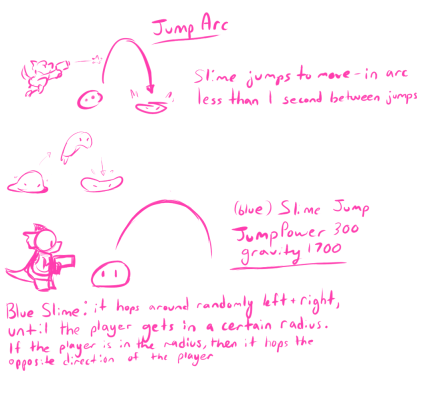 Jump Arc
Slime jumps to move - in arc
less than 1 second between jumps
(blue) Slime Jump
JumpPower 300
gravity 1700
Blue Slime: it hops around randomly left + right,
until the player gets in a certain radius.
If the player is in the radius, then it hops the
opposite direction of the player